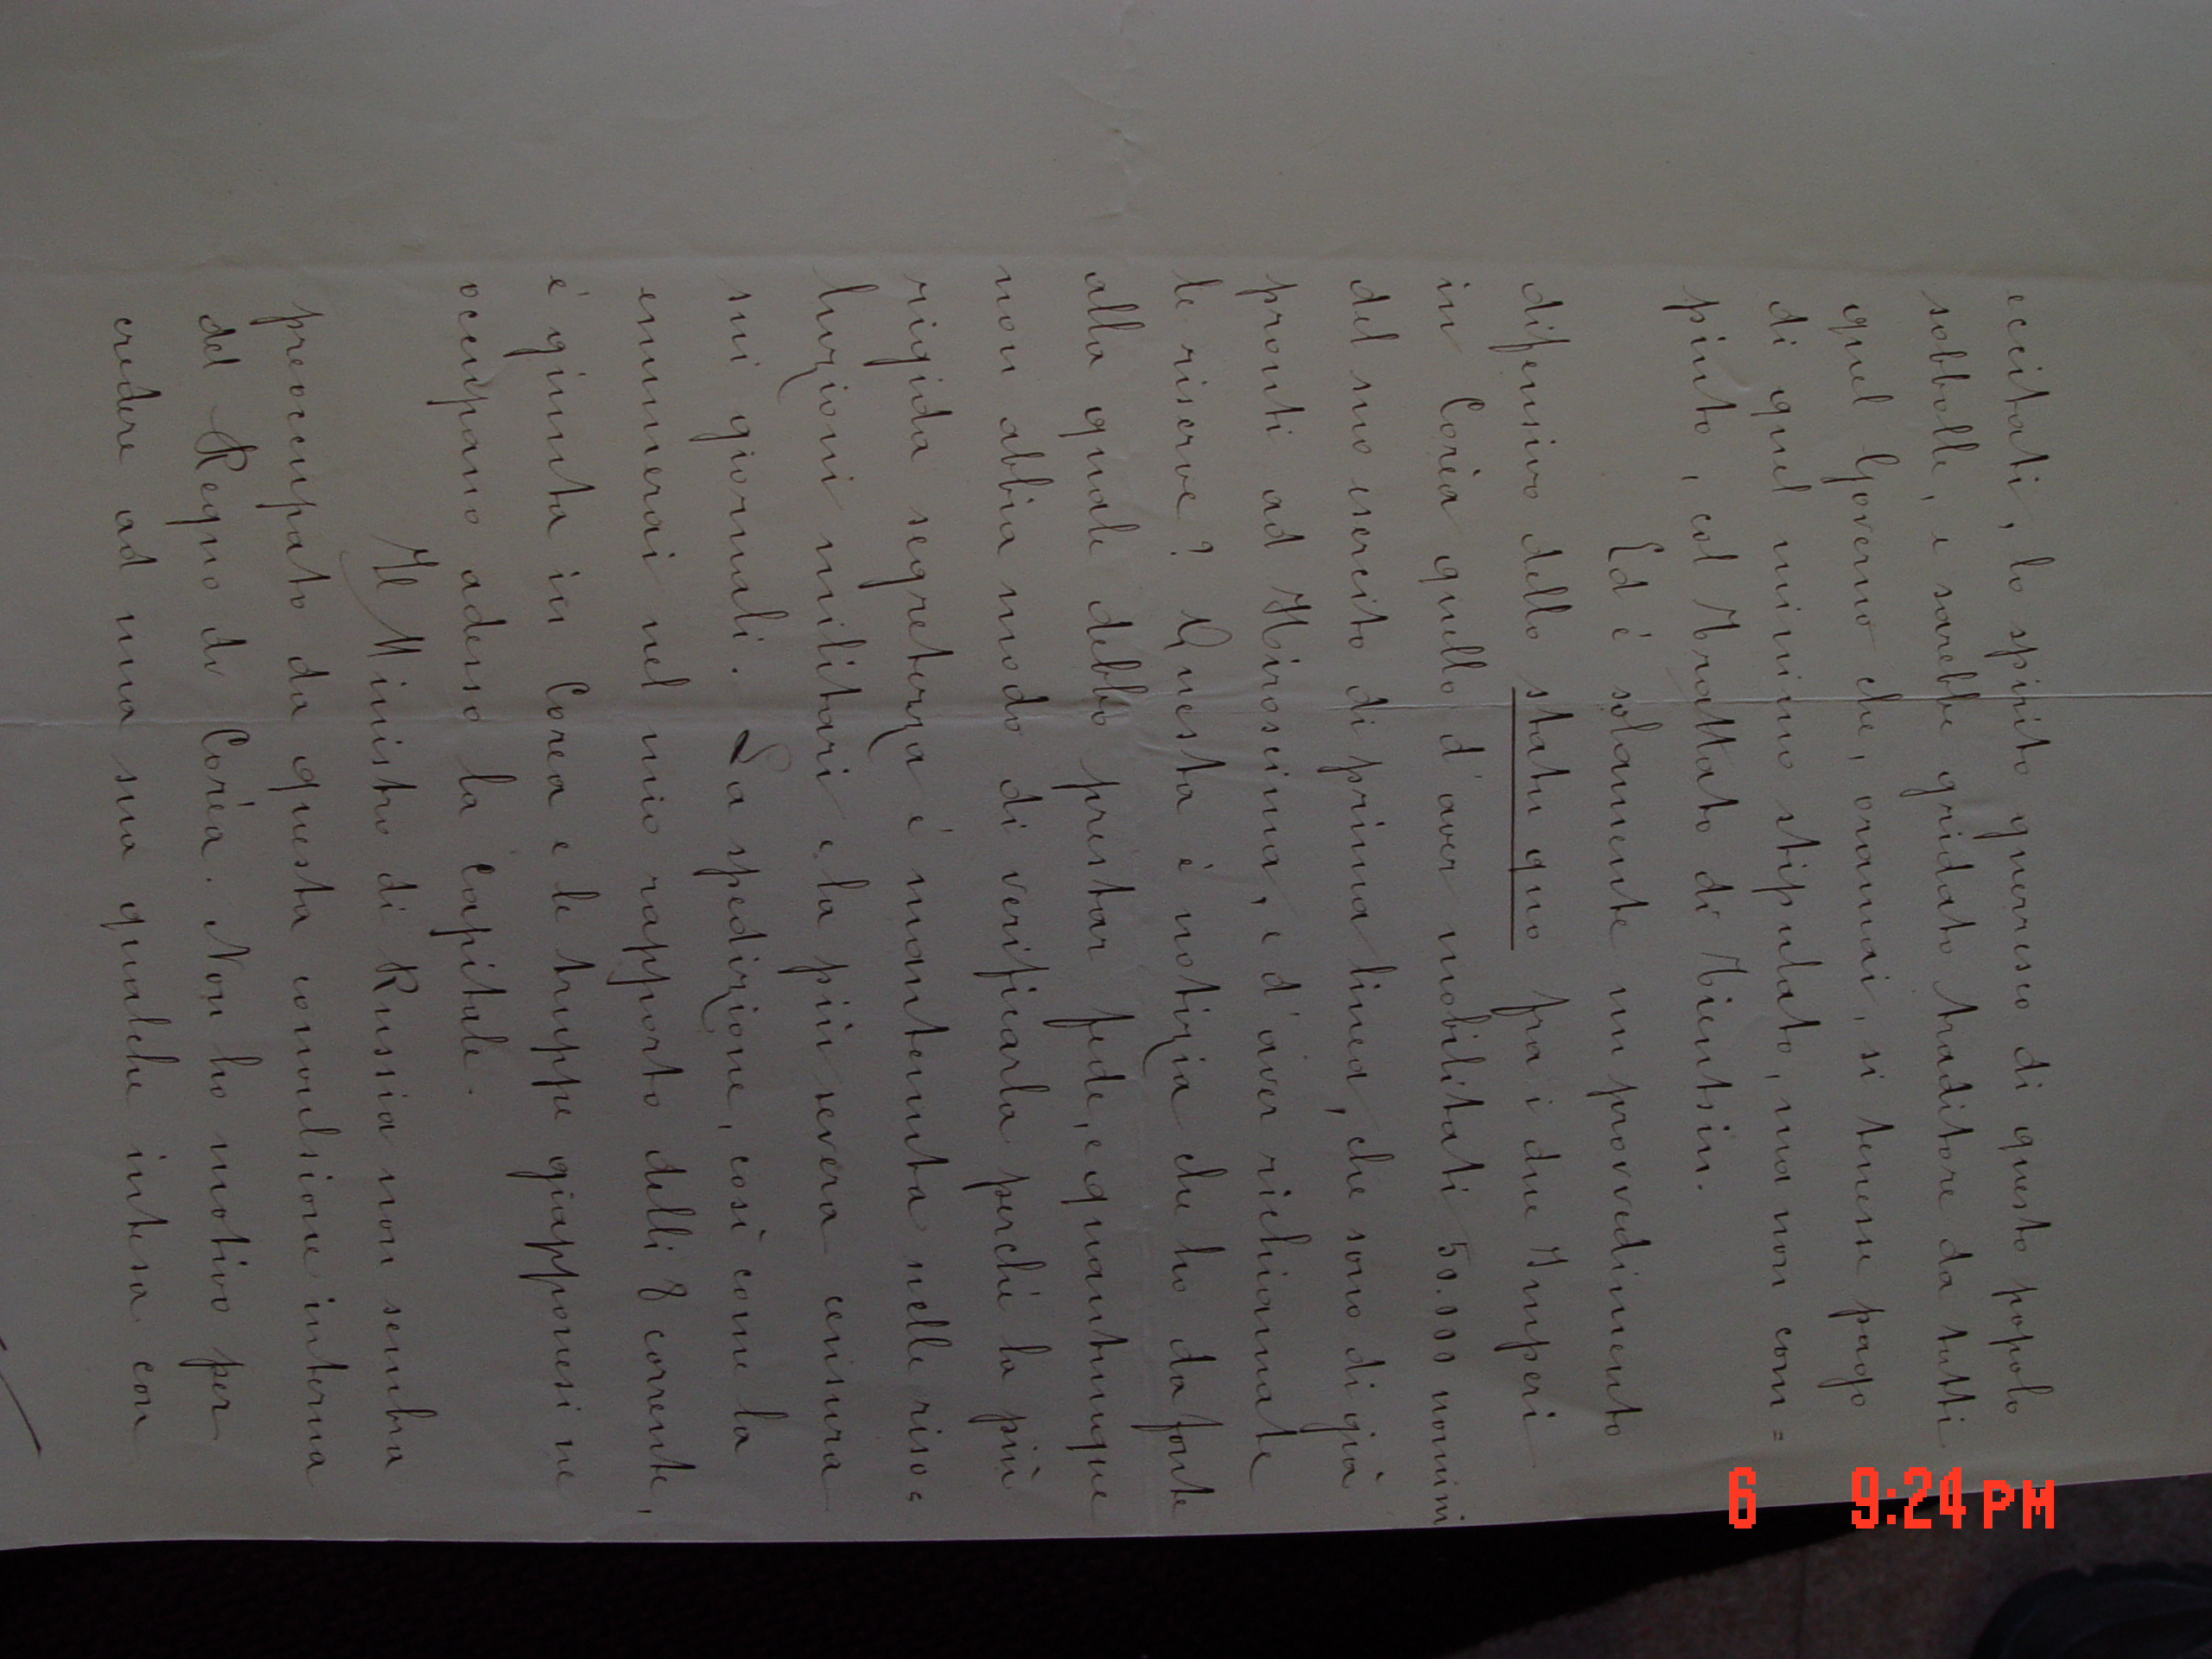 eccitati, lo spirito guerresco di questo popolo
sobbolle, e sarebbe gridato traditore da tutti
quel Governo che, oramai, si tenesse pago
di quel minimo stipulato, ma non com=
piuto, col Trattato di Tientsin.
Ed è solamente un provvedimento
difensivo dello statu quo fra i due Imperi
in Coréa quello d'aver mobilitati 50.000 uomini
del suo esercito di prima linea, che sono di già
pronti ad Hiroscima, e d'aver richiamate
le riserve? Questa è notizia che ho da fonte
alla quale debbo prestar fede, e quantunque
non abbia modo di verificarla perché la più
rigida segretezza é mantenuta nelle riso=
luzioni militari e la più severa censura
sui giornali. La spedizione, così come la
enumerai nel mio rapporto delli 8 corrente,
é giunta in Corea e le truppe giapponesi ne
occupano adesso la Capitale.
Il Ministro di Russia non sembra
preoccupato da questa convulsione interna
del Regno di Coréa. Non ho motivo per
credere ad una sua qualche intesa con
6 9:24 PM